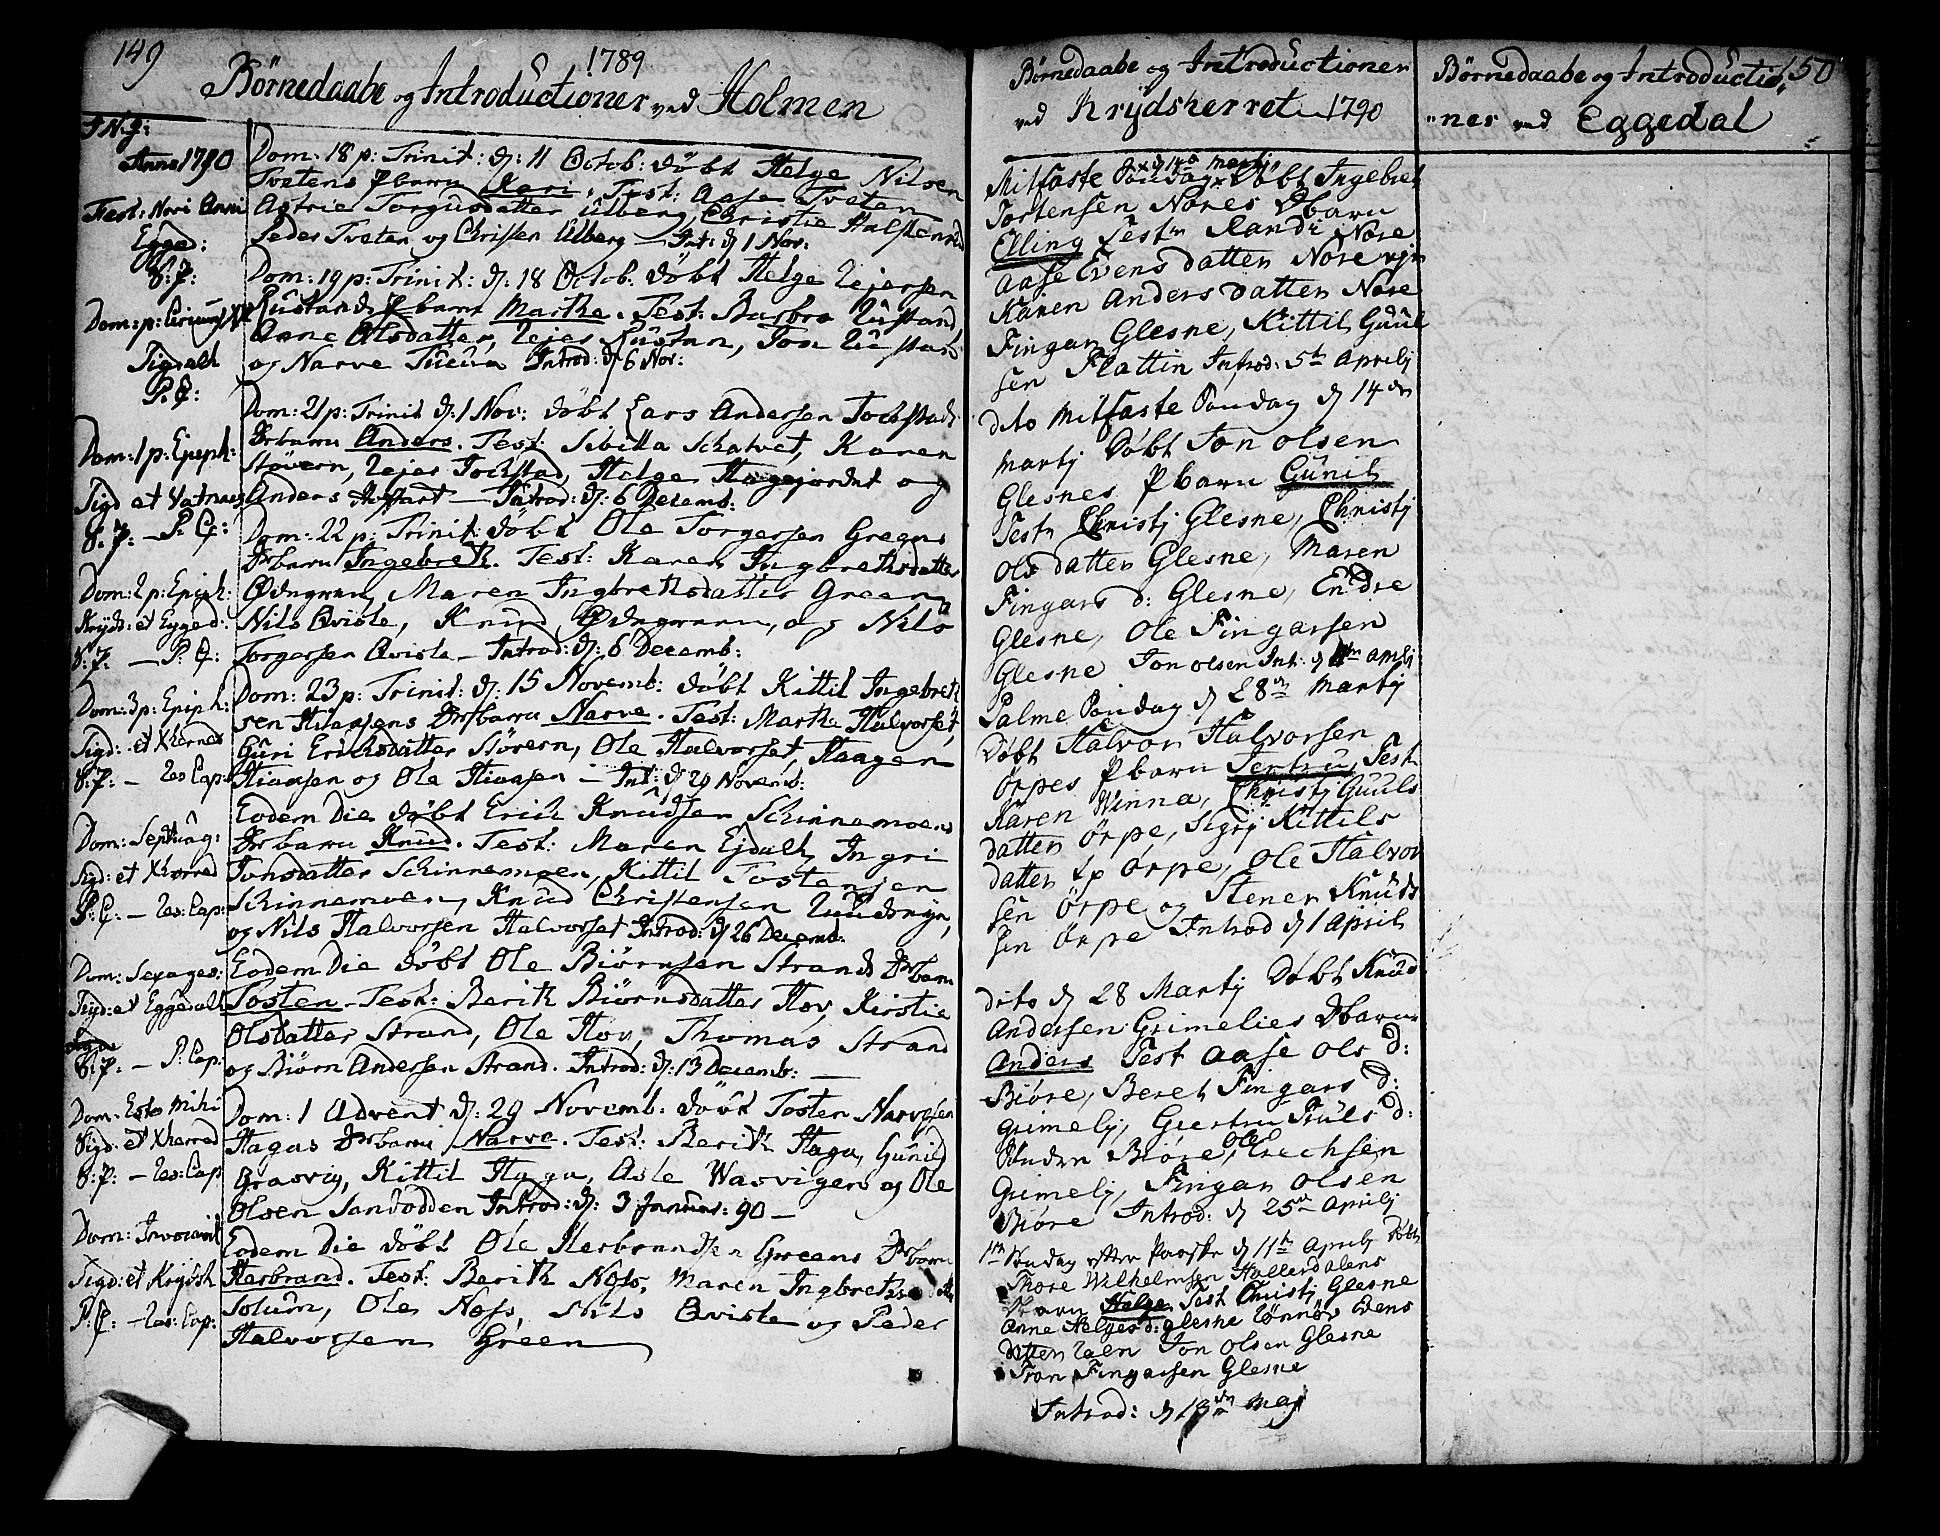 149
1789
Börnedaabe og Introductioner ved Holmen
Anno 1790
Fest: Novi Anni
Egge:
S: P:
Dom: p:
Sigdalh
P: C:
Dom: 1 p: Epiph:
Sigd et Vatnaas
S: P: - P: C:
Dom: 2 p: Epiph:
Kryds: et Egged:
S: P: - P: C:
Dom: 3 p: Epiph:
Sigd: et Xherred
S: P: - Res: Cap:
Dom: Septuag:
Sigd: et Xherred
P: C: - Res: Cap:
Dom: Sexages:
Sigd: et Eggedalh
S: P: - P: Cap:
Dom: Esto Mihi
Sigd: et Xherred
S: P: - Res: Cap
Dom: Invocavit
Sigd: et Krydsh
P: C: - Res: Cap:
Dom: 18 p: Trinit: d: 11 Octob: döbt Helge Nilsen
Tvetens Pbarn Kari. Test: Aase Tveten
Astrie Torgusdatter Ulberg, Christie Halstensd
Peder Tveten og Christen Ulberg - Int: d 1 Nov:
Dom: 19 p: Trinit: d: 18 Octob: döbt Helge Rejersen
Rustands Pbarn Marthe. Test: Barbro Rustand,
Anne Olsdatter, Rejer Rustan, Jon Rustand
og Narve Introd: d 6 Nov:
Dom: 21 p: Trinit d: 1 Nov: döbt Lars Andersen Tochstads
Drbarn Anders. Test: Sibilla Schatvet, Karen
Stövern, Rejer Tochstad, Helge Hagejordet og
Anders Hofstart - Introd: d: 6 Decemb:
Dom: 22 p: Trinit: döbt Ole Torgersen Greens
Drbarn Ingebreth. Test: Karen Ingbrethsdatter
Ödegraun, Maren Ingbrethsdatter Green
Nils Qviste, Knud Ödegraun, og Nils
Torgersen Qviste - Introd: d: 6 Decemb:
Dom: 23 p: Trinit: d: 15 Novemb: döbt Kittil Ingebreth
sen Hiaasens Drbarn Narve. Test: Marthe Halvorset,
Guri Erichsdatter Stövern, Ole Halvorset, Haagen
Hiaasen og Ole Hiaasen - Int: d 29 Novemb:
Eodem Die döbt Erich Knudsen Schinnemoens
Drbarn Knud. Test: Maren Ejdalh, Ingri
Jonsdatter Schinnemoen, Kittil Tostensen
Schinnemoen, Knud Christensen
og Nils Halvorsen Halvorset Introd: d 26 Decemb:
Eodem Die döbt Ole Biörnsen Strands Drbarn
Tosten - Test: Berith Biörnsdatter Hov, Kirstie
Olsdatter Strand, Ole Hov, Thomas Strand
og Biörn Andersen Strand. Introd: d: 13 Decemb:
Dom: 1 Advent d: 29 Novemb: döbt Tosten Narvesen
Hagas Drbarn Narve. Test: Berith Haga, Gunild
Grasvig, Kittil Haga, Asle Wasvigen og Ole
Olsen Sandodden Introd: d: 3 Januar: 90 -
Eodem Die döbt Ole Herbrandsen Greens Drbarn
Herbrand. Test: Berith Noss, Maren Ingbreths
Solum, Ole Noss, Nils Qviste og Peder
Halvorsen Green
Börnedaabe og Introductioner
ved Krydsherret 1790
Mitfaste Söndag x d 14de Martj x Döbt Ingebret
Tortensen Nores Dbarn
Elling Test Randi Nore
Aase Evens datter Nore
Karen Anders datter Nore
Fingar Glesne, Kittil Guul
sen Flattin Introd: 5te Aprilj
dito Mitfaste Söndag d 14de
Martj Döbt Jon Olsen
Glesnes Pbarn Gunil
Test Christj Glesne, Christj
Ols datter Glesne, Maren
Fingars d: Glesne, Endre
Glesne, Ole Fingarsen
Glesne Jon Olsen Int: d Aprilj
Palme Söndag d 28de Martj
Döbt Halvor Halvorsen
Örpes Pbarn Jertru, Test
Karen Winna, Christj Guuls
datter Örpe, Sigrj Kittils
datter Örpe, Ole Halvor
sen Örpe og Stener Knuds
sen Örpe Introd d 1 April
dito d 28 Martj Döbt Knud
Andersen Grimelies Dbarn
Anders Test Aase Ols d:
Biöre, Beret Fingars d:
Grimelj, Giertru Truls d:
Biöre, Ole Erechsen
Grimelj, Fingar Olsen
Biöre Introd: d 25de Aprilj
1te Söndag efter Paaske d 11te Aprilj Döbt
Thore Wilhelmsen Hallesdalens
Dbarn Helge Test Christj Glesne
Anne Helges d: Glesne Rönnöv Edens
datter Jon Olsen Glesne
Tron Fingarsen Glesne
Introd: d 13de Maj
Börnedaabe og Introductio,
150
"ner ved Eggedal